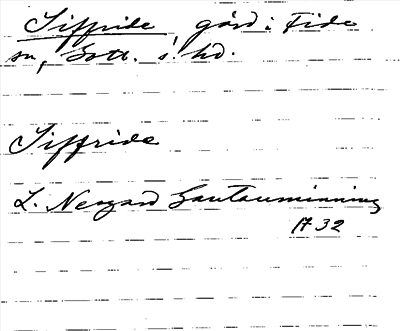 Siffride gård i Fide
sn, Gotl. s. hd.
Siffride
L. Neogard Gautauminning
1732